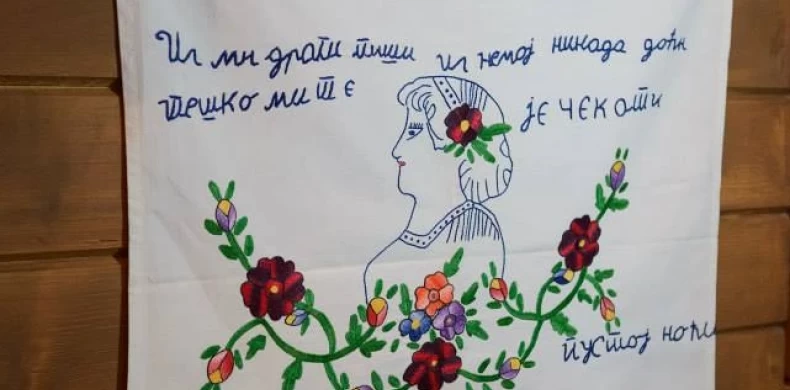 Ил ми драги пиши ил немој никада доћи
тешко ми те је чекати
пустој ноћи